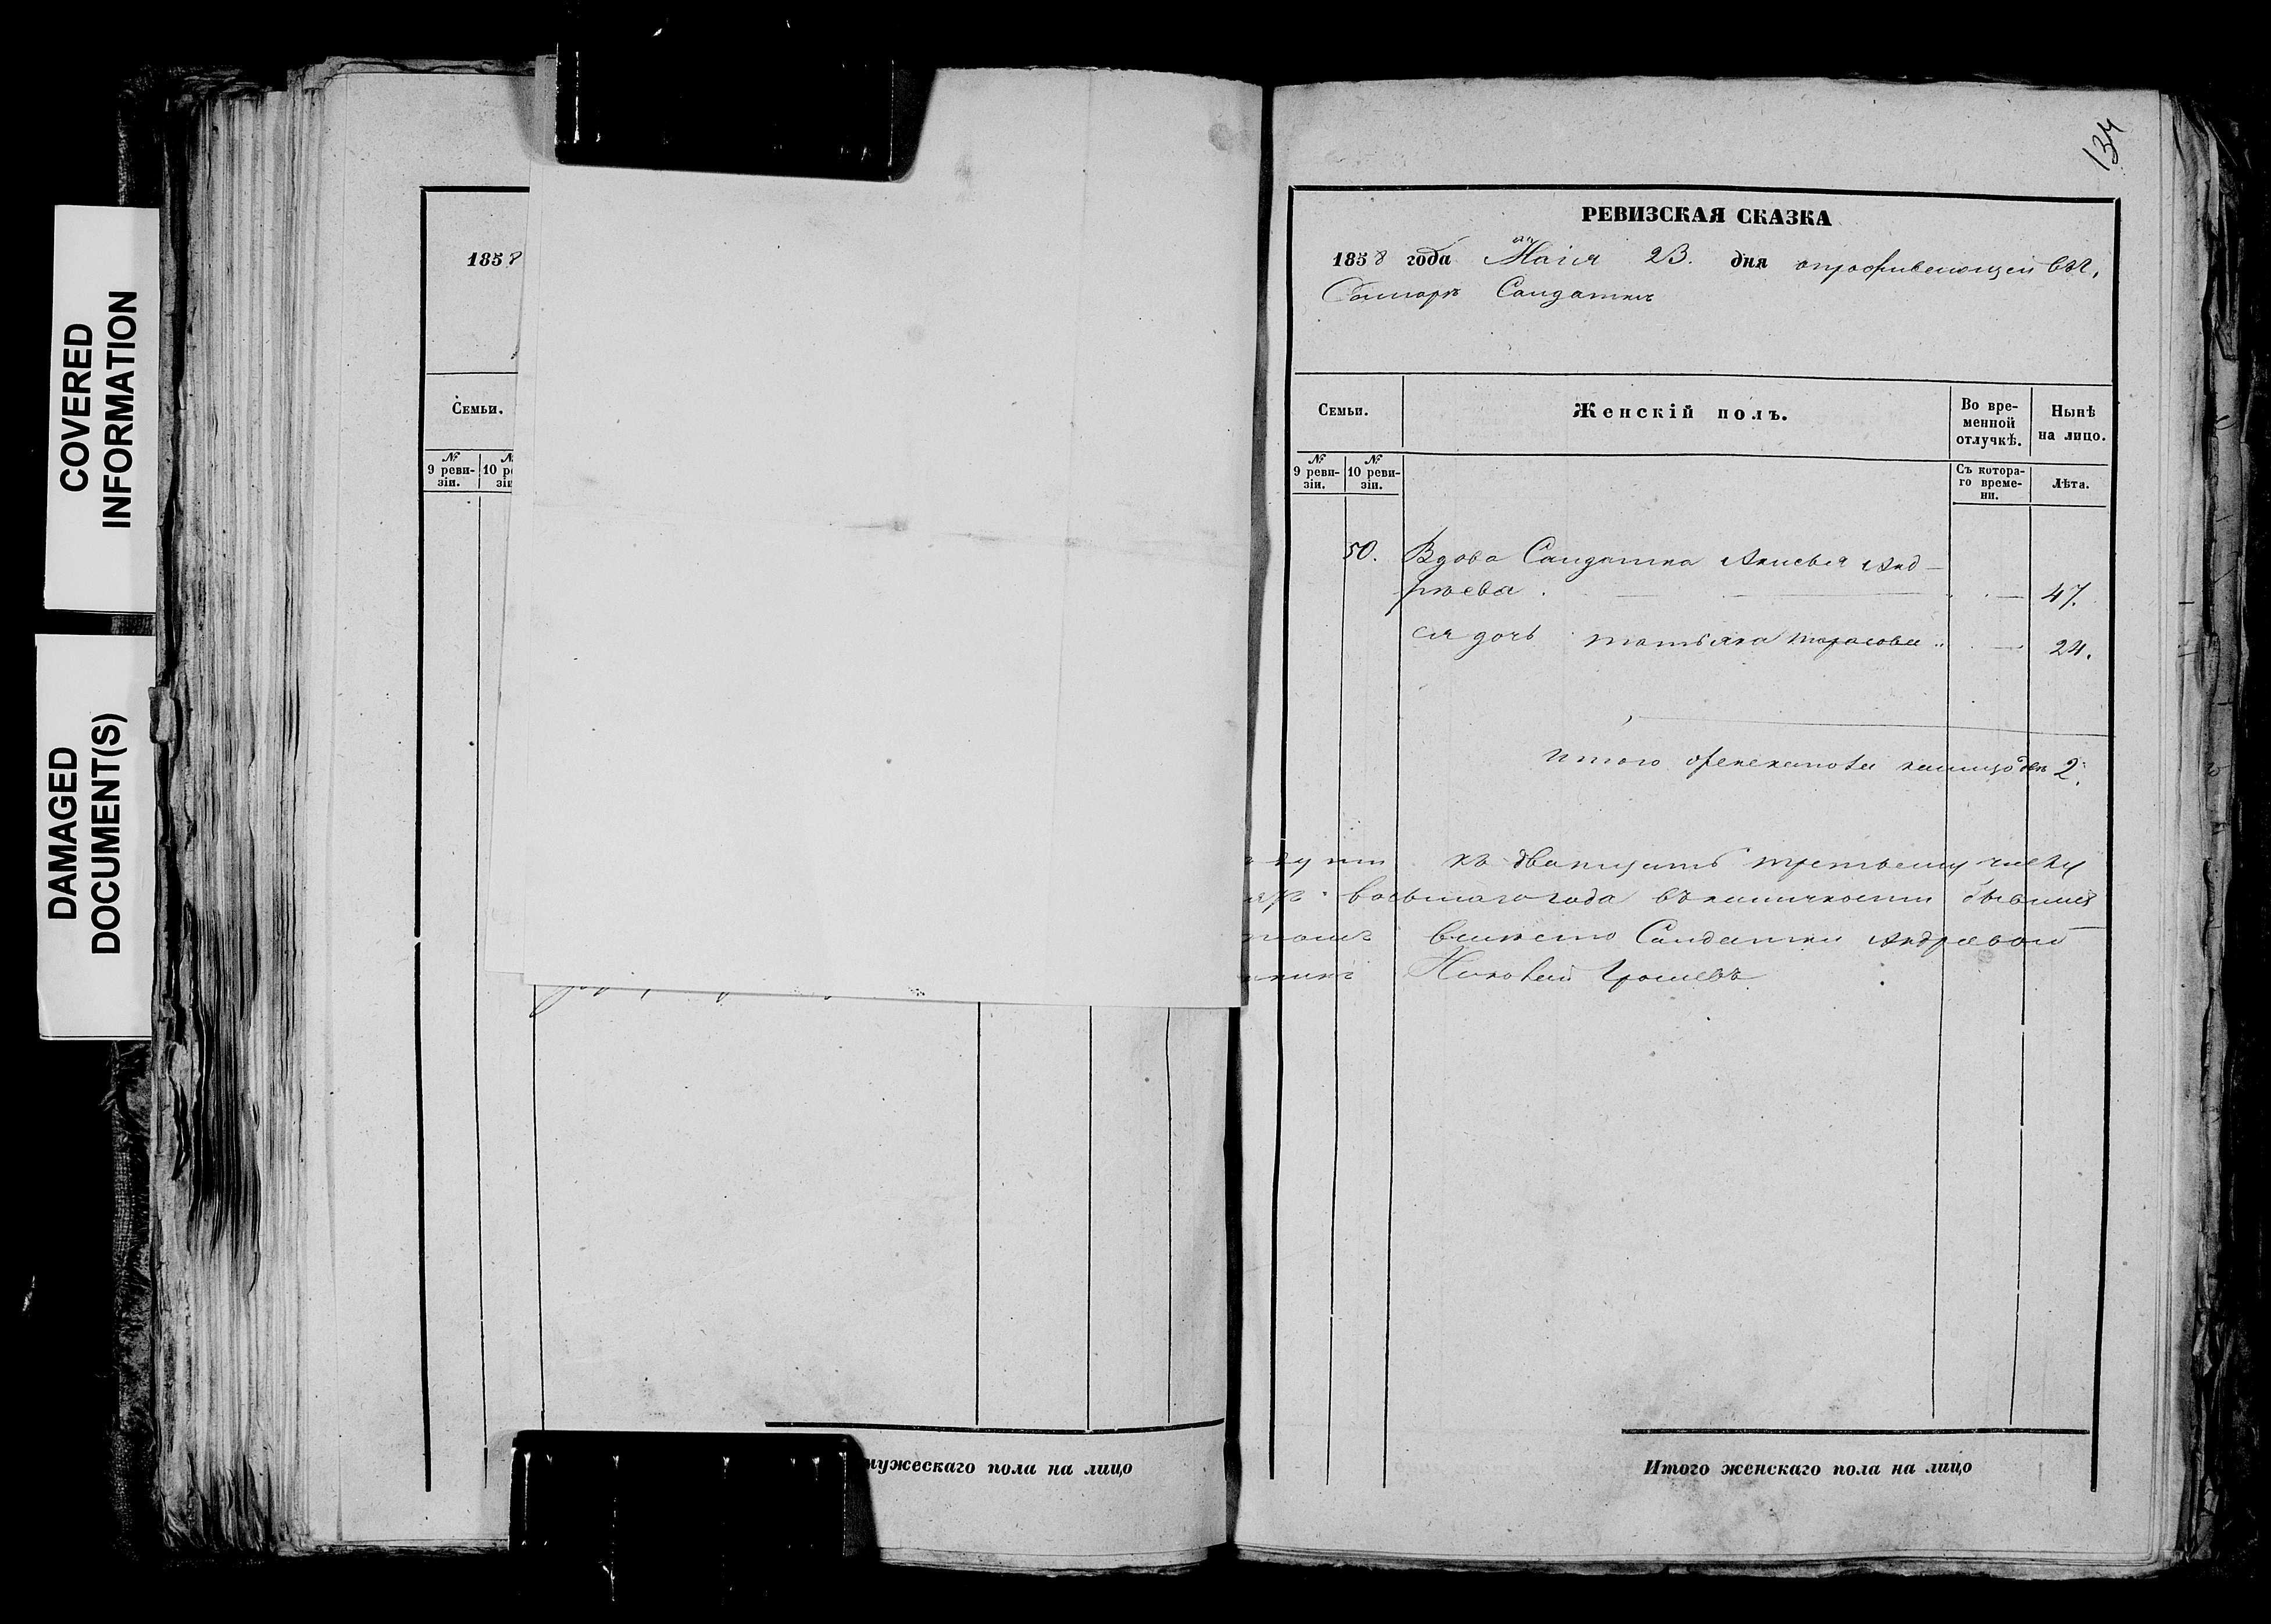 COVERED
INFORMATION
DAMAGED
DOCUMENT(S)
1858
Семьи.
№
9 реви-
зіи.
№
10 ре
зіи
мужескаго пола на лицо
134
РЕВИЗСКАЯ СКАЗКА
1858 года Маія 23. дня о проживающей въ г.
Самаръ Салдатки
Семьи.
Женскій полъ.
Во вре-
менной
отлучкѣ.
Нынѣ
на лицо.
№
9 реви-
зіи.
№
10 реви-
зіи.
Съ котора-
го време-
ни.
Лѣта.
50. Вдова Салдатка Анисья Анд-
рѣева 47.
ея дочь татьяна тарасова 24.
итого женскапола налицо 2.
къ дватцать третьему числу
восьмаго года въ наличности бывшия
вмѣсто Салдатки Андреевой
Итого женскаго пола на лицо